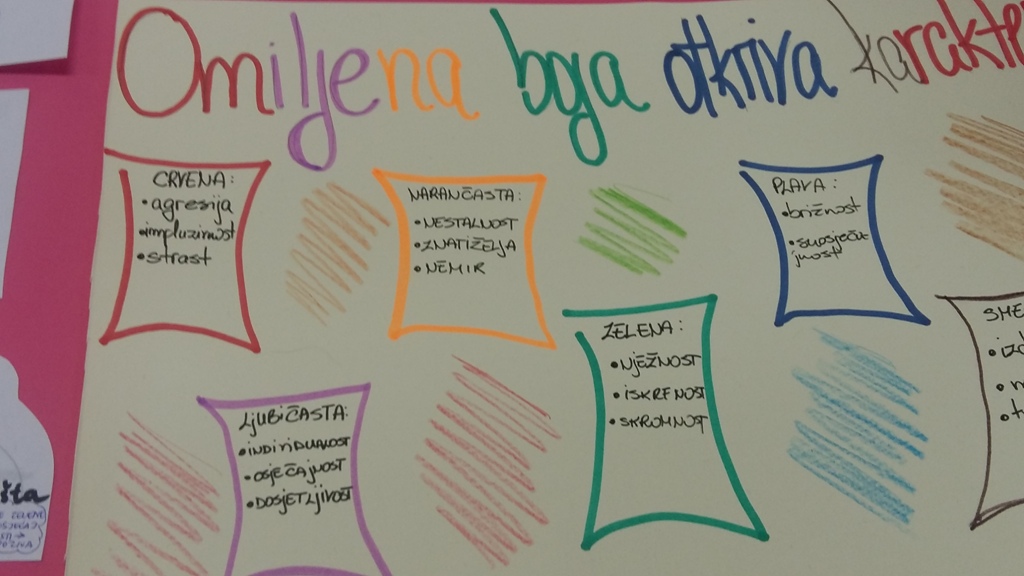 Omiljena boja otkriva karakte
CRVENA:
• agresija
• impluzivnost
• strast
NARANČASTA:
• NESTALNOST
• ZNATIŽELJA
• NEMIR
PLAVA:
• brižnost
• suosjeća
jnost
ZELENA:
• NJEŽNOST
• ISKRENOST
• SKROMNOT
LJUBIČASTA:
• INDIVIDUALOST
• OSJEČAJNOST
• DOSJETLJIVOST
SME